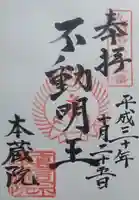 奉拝
平成二十年
十月二十五日
不動明王
本蔵院